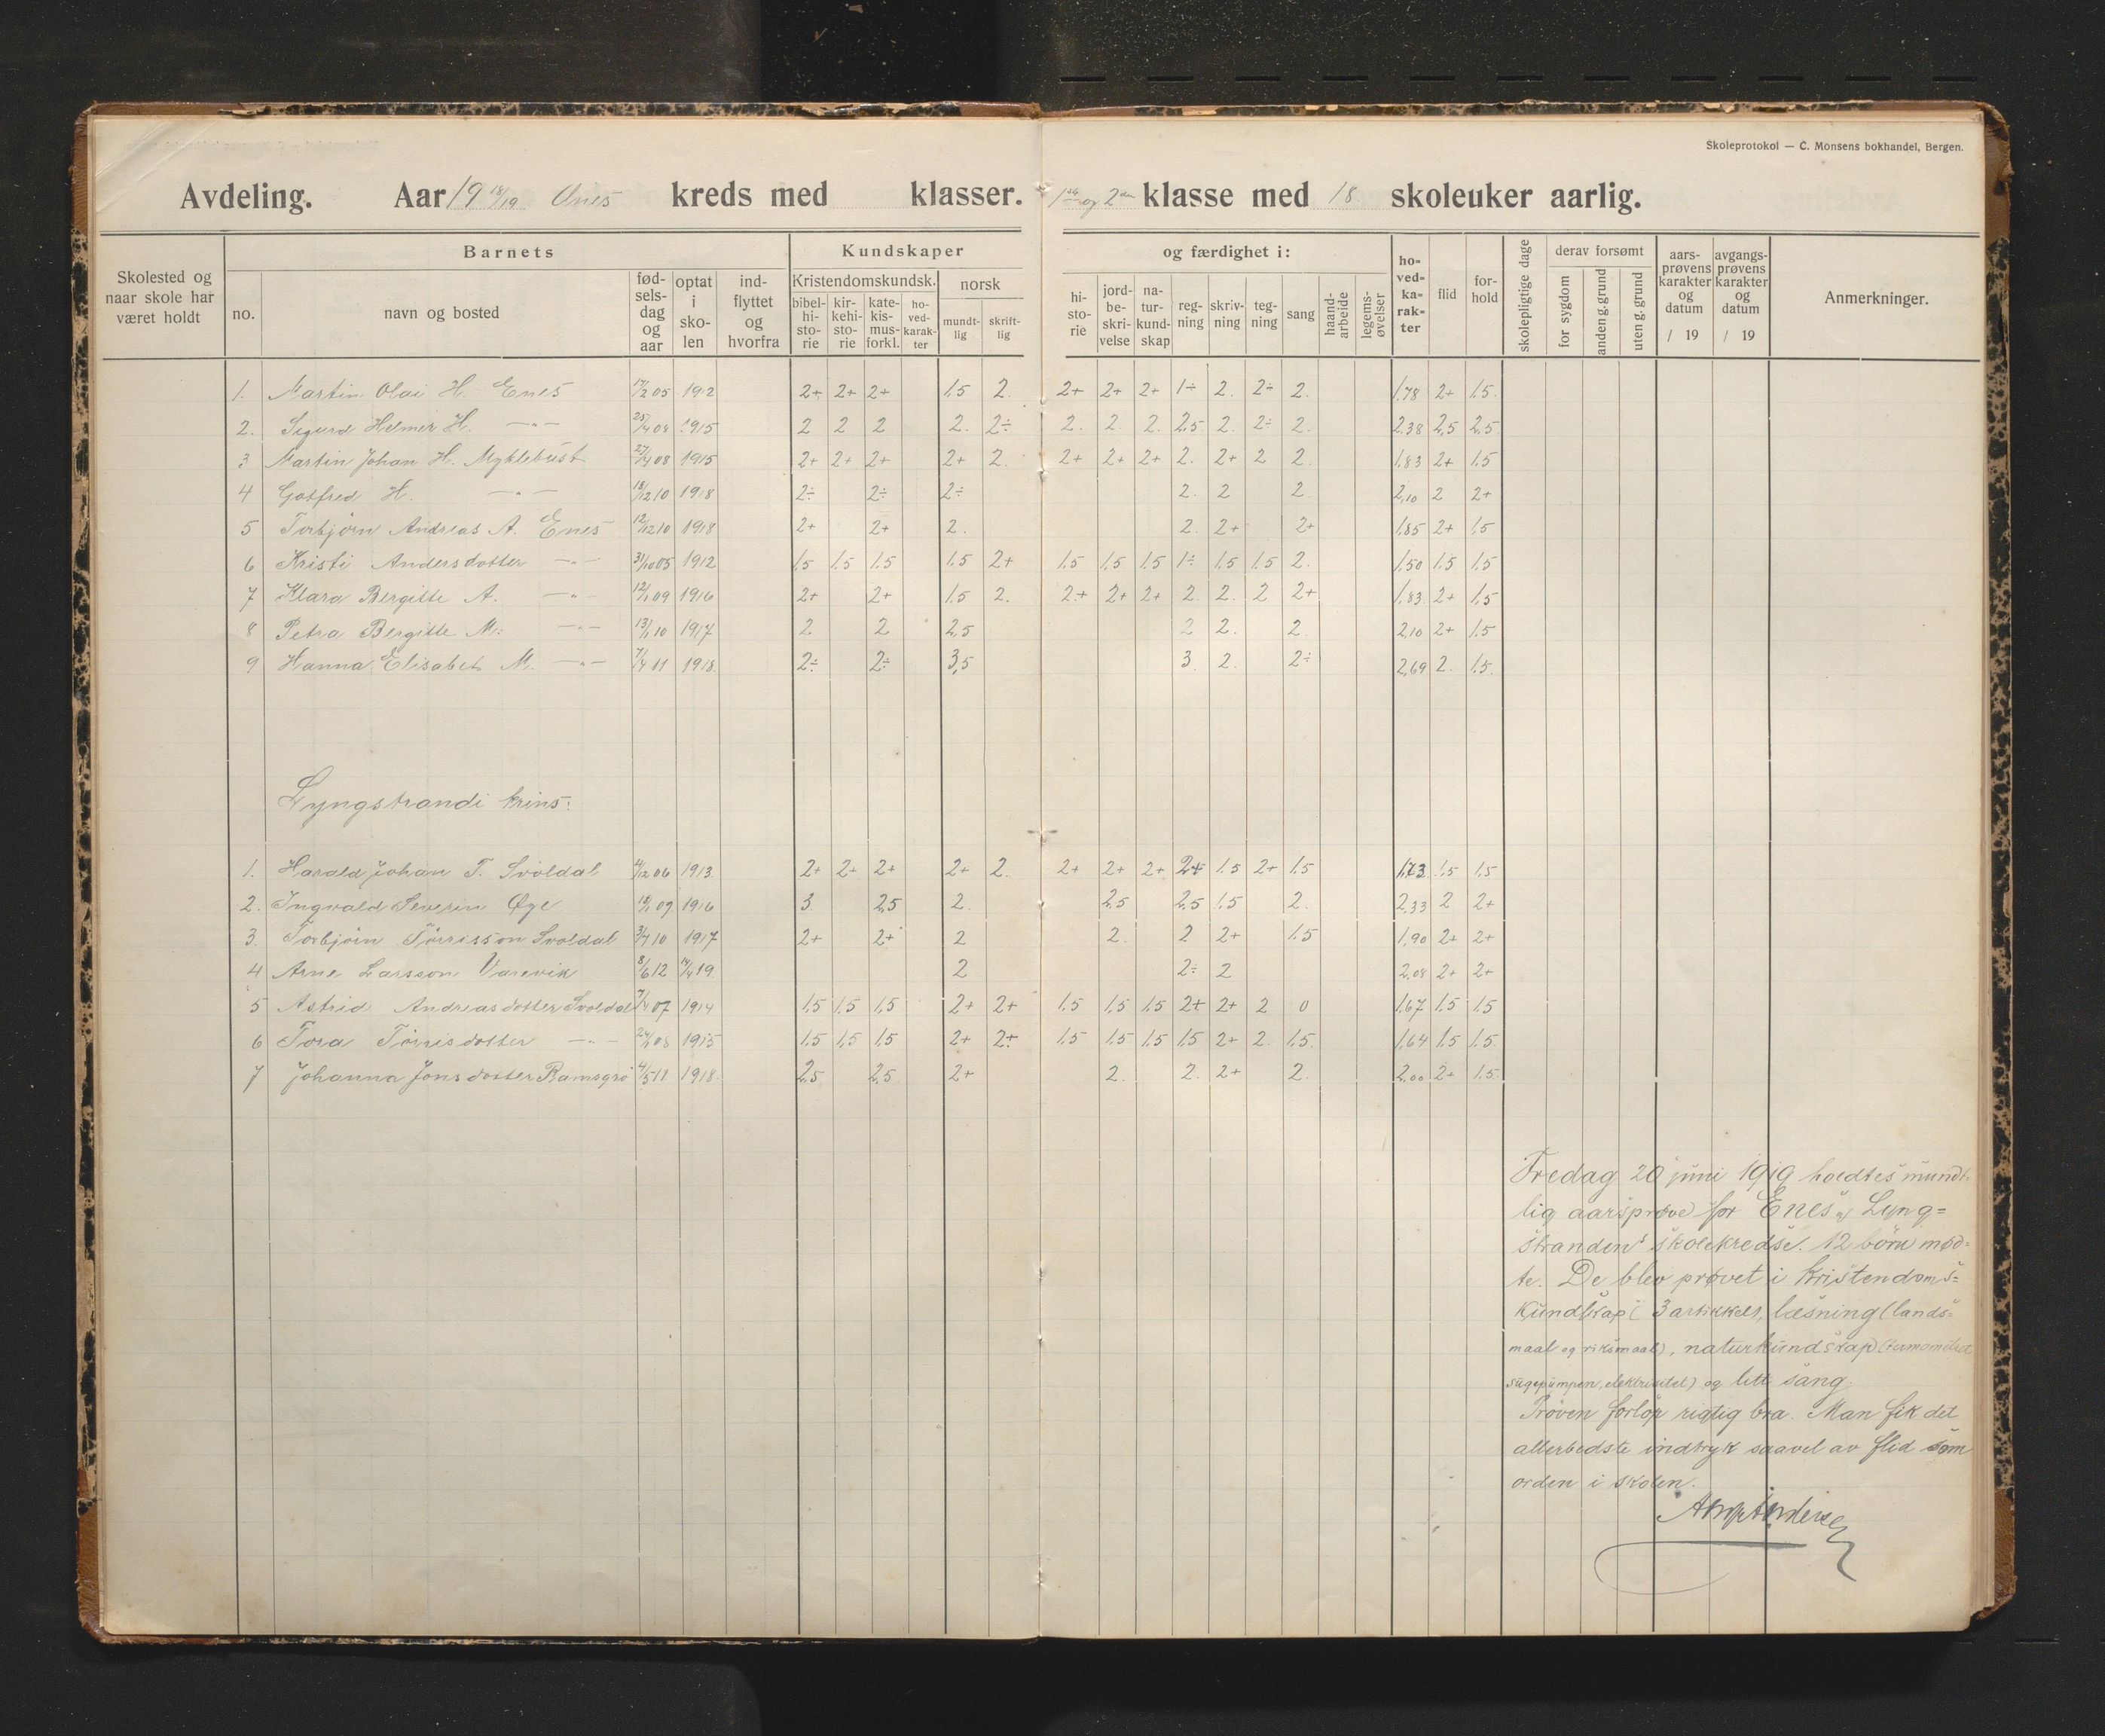 Skoleprotokol — C. Monsens bokhandel, Bergen.
Avdeling. Aar 19 18/19 Enes kreds med klasser. 1ste og 2den klasse med 18 skoleuker aarlig.
Skolested og naar skole har været holdt
Barnets
no. navn og bosted fød-sels-dag og aar optat i sko-len ind-flyttet og hvorfra
Kundskaper og færdighet i:
Kristendomskundsk. bibel-hi-sto-rie kir-kehi-sto-rie kate-kis-mus-forkl. ho-ved-karak-ter
norsk mundt-lig skrift-lig
hi-sto-rie jord-be-skri-velse na-tur-kund-skap reg-ning skriv-ning teg-ning sang haand-arbeide legems-øvelser
ho-ved-ka-rak-ter flid for-hold skolepligtige dage
derav forsømt for sygdom anden g. grund uten g. grund
aars-prøvens karakter og datum / 19 avgangs-prøvens karakter og datum / 19
Anmerkninger.
1. Martin Olai H. Enes 17/2 05 1912 2+ 2+ 2+ 1,5 2. 2+ 2+ 2+ 1÷ 2. 2÷ 2. 1,78 2+ 1,5.
2. Sigurd Helmer H. —"— 25/4 08 1915 2 2 2 2. 2÷ 2. 2. 2. 2,5 2. 2÷ 2. 2,38 2,5 2,5
3 Martin Johan H. Myklebust 27/4 08 1915 2+ 2+ 2+ 2+ 2. 2+ 2+ 2+ 2. 2+ 2 2 1,83 2+ 1,5
4 Gotfred H. —"— 18/12 10 1918 2÷ 2÷ 2÷ 2. 2 2. 2,10 2 2+
5 Torbjörn Andreas A. Enes 12/12 10 1918 2+ 2+ 2. 2. 2+ 2+ 1,85 2+ 1,5
6 Kristi Andersdotter —"— 31/10 05 1912 1,5 1,5 1,5 1,5 2+ 1,5 1,5 1,5 1÷ 1,5 1,5 2. 1,50 1,5 1,5
7 Klara Bergitte A. —"— 12/1 09 1916 2+ 2+ 1,5 2. 2+ 2+ 2+ 2. 2. 2 2+ 1,83 2+ 1,5
8 Petra Bergitte M. —"— 13/1 10 1917 2 2 2,5 2 2. 2 2,10 2+ 1,5
9 Hanna Elisabet M. —"— 7/4 11 1918 2÷ 2÷ 3,5 3. 2. 2÷ 2,69 2. 1,5.
Lyngstrandi krins:
1. Harald Johan T. Svoldal 4/12 06 1913 2+ 2+ 2+ 2+ 2. 2+ 2+ 2+ 2+ 1,5 2+ 1,5 1,73 1,5 1,5
2. Ingvald Severin Øye 18/1 09 1916 3 2,5 2. 2,5 2,5 1,5 2. 2,33 2 2+
3. Torbjörn Törrisson Svoldal 3/4 10 1917 2+ 2+ 2 2. 2 2+ 1,5 1,90 2+ 2+
4 Arne Larsson Varevik 8/6 12 14/4 19 2 2÷ 2 2,08 2+ 2+
5 Astrid Andreasdotter Svoldal 7/4 07 1914 1,5 1,5 1,5 2+ 2+ 1,5 1,5 1,5 2+ 2+ 2 0 1,67 1,5 1,5
6 Tora Törrisdotter —"— 24/1 08 1915 1,5 1,5 1,5 2+ 2+ 1,5 1,5 1,5 1,5 2+ 2. 1,5. 1,64 1,5 1,5
7 Johanna Jonsdotter Ramsgrö 4/5 11 1918. 2,5 2,5 2+ 2. 2. 2+ 2. 2,00 2+ 1,5
Fredag 20 juni 1919 holdtes mundt-
lig aarsprøve for Enes og Lyng=
strandens skolekredse. 12 börn mød=
te. De blev prøvet i Kristendoms=
kundskap i 3 artikkel, læsning (lands=
maal og riksmaal), naturkundskap (termometret
sugepumpen, elektrisitet) og litt sang.
Prøven forløp rigtig bra. Man fik det
allerbedste indtryk saavel av flid som
orden i skolen.